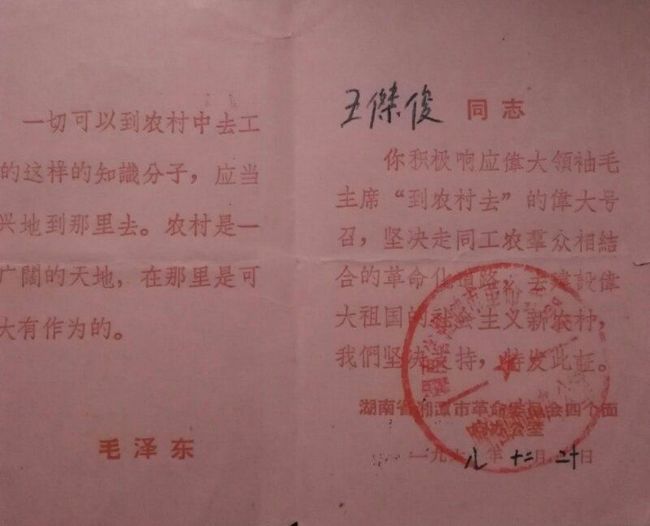 一切可以到农村中去工
的这样的知識分子，应当
兴地到那里去。农村是一
广闊的天地，在那里是可
大有作为的。
毛泽东
王傑俊 同志
你积极响应偉大領袖毛
主席“到农村去”的偉大号
召，坚决走同工农羣众相結
合的革命化道路，去建設偉
大祖国的社会主义新农村，
我們坚决支持，特发此証。
湖南省湘潭市革命委員会四个面
向办公室
一九六八年十二月二十日